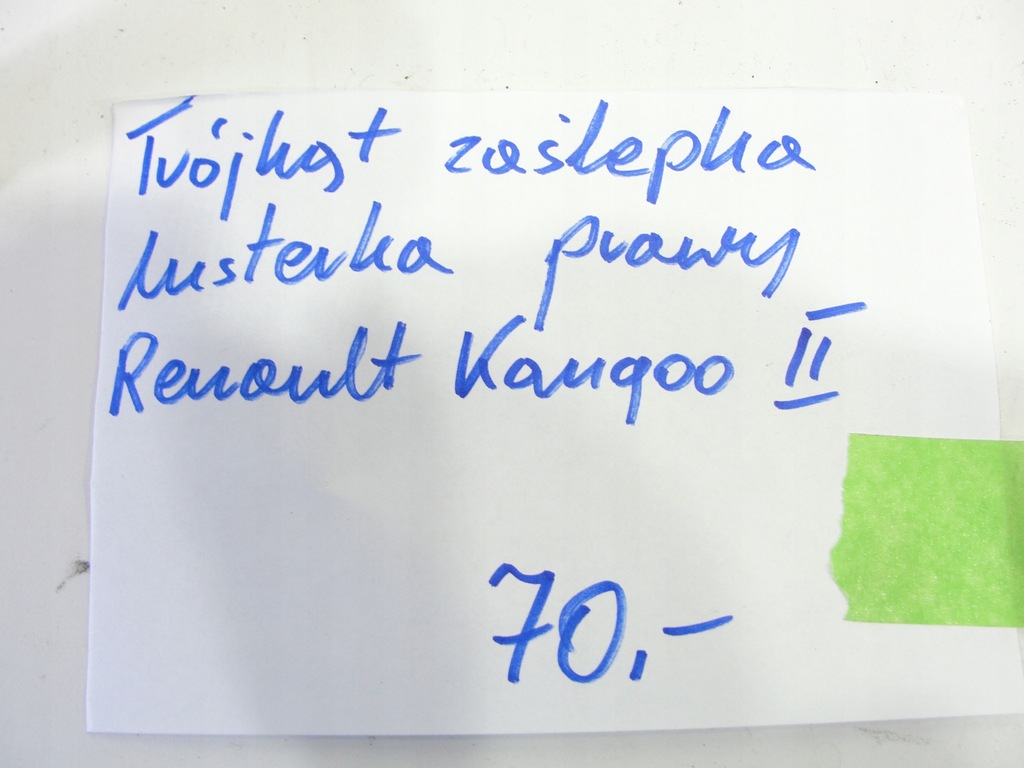 Trójkąt zaślepka
lusterka prawy
Renault Kangoo II
70.-